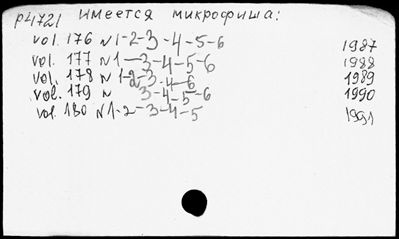 р4721 имеется микрофиша:
vol. 176 N 1-2-3-4-5-6 1987
vol. 177 N 1-3-4-5-6 1988
vol. 178 N 1-2-3-4-6 1989
vol. 179 N 3-4-5-6 1990
vol. 180 N 1-2-3-4-5 1991